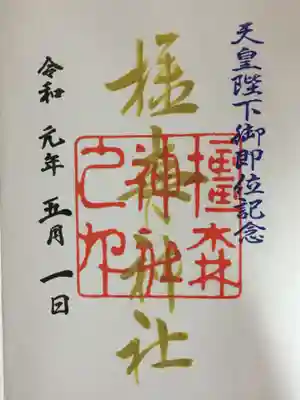 天皇陛下御即位記念
橿森神社
橿森
神社
之印
令和 元年 五月 一日